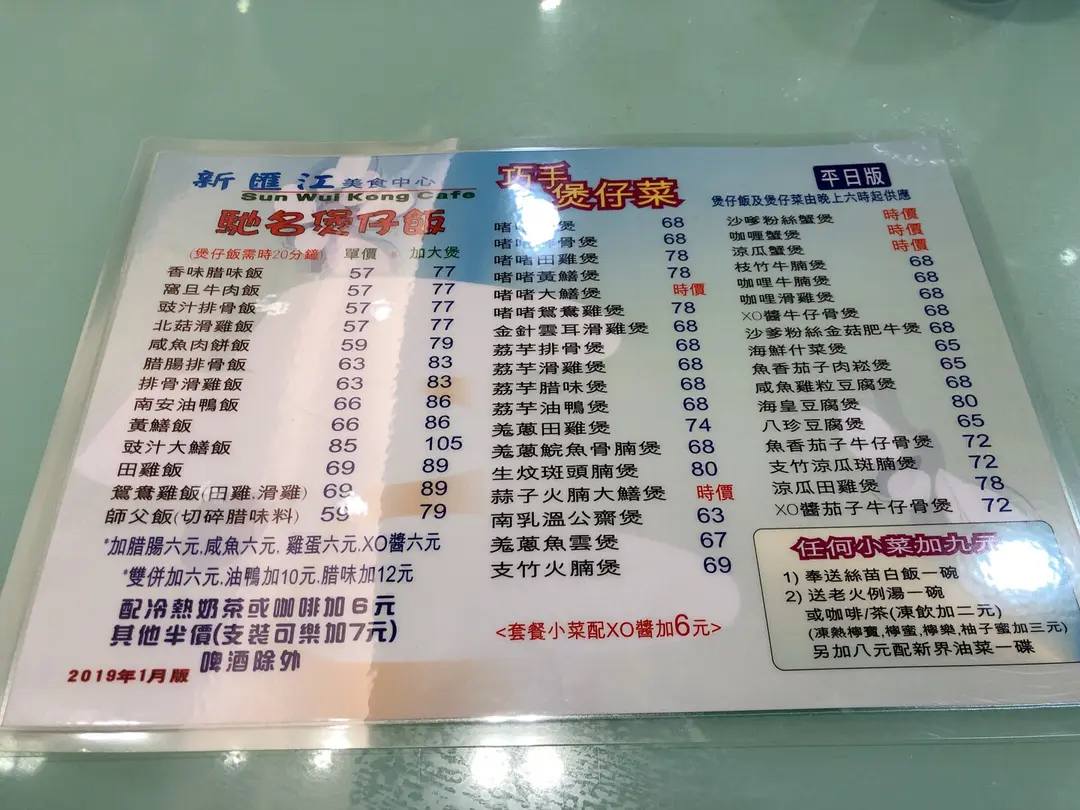 新匯江美食中心
Sun Wui Kong Cafe
馳名煲仔飯
(煲仔飯需時20分鐘) 單價 加大煲
香味腊味飯 57 77
窩旦牛肉飯 57 77
豉汁排骨飯 57 77
北菇滑雞飯 57 77
咸魚肉餅飯 59 79
腊腸排骨飯 63 83
排骨滑雞飯 63 83
南安油鴨飯 66 86
黃鱔飯 66 86
豉汁大鱔飯 85 105
田雞飯 69 89
鴛鴦雞飯(田雞.滑雞) 69 89
師父飯(切碎腊味料) 59 79
*加腊腸六元,咸魚六元, 雞蛋六元,XO醬六元
*雙併加六元,油鴨加10元,腊味加12元
配冷熱奶茶或咖啡加6元
其他半價(支裝可樂加7元)
啤酒除外
2019年1月版
巧手煲仔菜
啫啫 煲 68
啫啫排骨煲 68
啫啫田雞煲 78
啫啫黃鱔煲 78
啫啫大鱔煲 時價
啫啫鴛鴦雞煲 78
金針雲耳滑雞煲 68
荔芋排骨煲 68
荔芋滑雞煲 68
荔芋腊味煲 68
荔芋油鴨煲 68
羗蔥田雞煲 74
羗蔥鯇魚骨腩煲 68
生炆斑頭腩煲 80
蒜子火腩大鱔煲 時價
南乳溫公齋煲 63
羗蔥魚雲煲 67
支竹火腩煲 69
<套餐小菜配XO醬加6元>
平日版
煲仔飯及煲仔菜由晚上六時起供應
沙嗲粉絲蟹煲 時價
咖喱蟹煲 時價
涼瓜蟹煲 時價
枝竹牛腩煲 68
咖哩牛腩煲 68
咖哩滑雞煲 68
XO醬牛仔骨煲 68
沙爹粉絲金菇肥牛煲 68
海鮮什菜煲 65
魚香茄子肉崧煲 65
咸魚雞粒豆腐煲 68
海皇豆腐煲 80
八珍豆腐煲 65
魚香茄子牛仔骨煲 72
支竹涼瓜斑腩煲 72
涼瓜田雞煲 78
XO醬茄子牛仔骨煲 72
任何小菜加九元
1) 奉送絲苗白飯一碗
2) 送老火例湯一碗
或咖啡/茶(凍飲加二元)
(凍熱檸寶,檸蜜,檸樂,柚子蜜加三元)
另加八元配新界油菜一碟